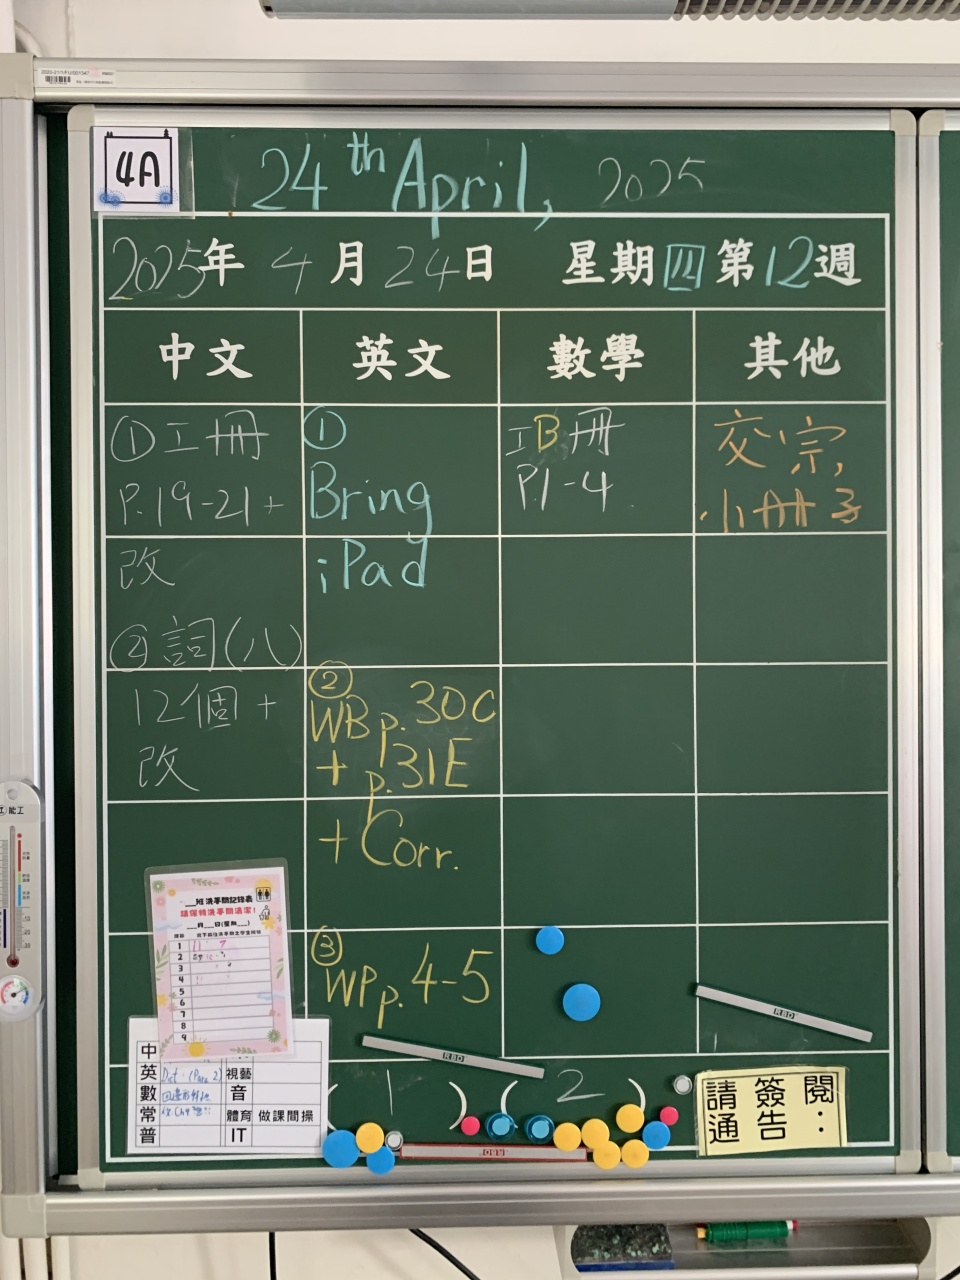 4A
24th April, 2025
2025年 4月 24日 星期四 第12週
中文 英文 數學 其他
①工冊
P.19-21+
改
②詞(八)
12個+
改
①
Bring
iPad
②
WB p.30C
+ p.31E
+ Corr.
③
WP p.4-5
工B冊
P.1-4
交宗,
小冊子
班洗手間記錄表
請保持洗手間清潔!
月 日(星期 )
1
2
3
4
5
6
7
8
9
中
英 Dict. (Para 2) 視藝
數 音
常 體育 做課間操
普 IT
( 1 ) ( 2 )
請簽閱
通告:
RBD
RBD